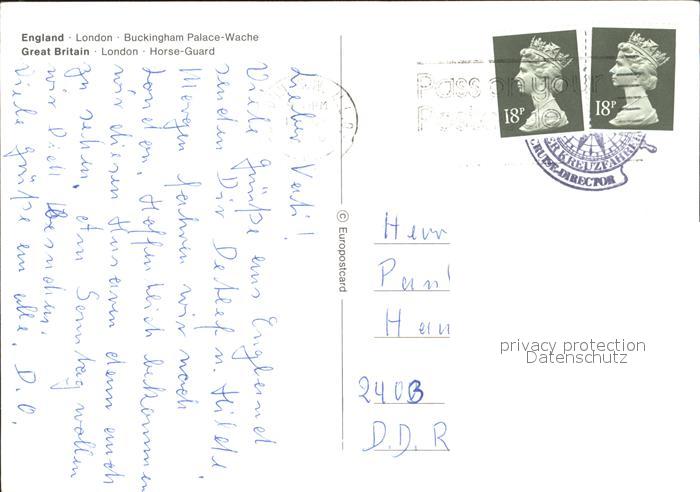 England · London · Buckingham Palace-Wache
Great Britain · London · Horse-Guard
Lieber Vati!
Viele Grüße aus England
senden Dir Detlef u. Hilde.
Morgen fahren wir nach
London. Hoffentlich bekommen
wir diesen Husaren dann auch
zu sehen. Am Sonntag wollen
wir Dich besuchen.
Viele Grüße an alle. D. O.
© Europostcard
Pass on your
18P
18P
KREUZFAHRE
CRUISE-DIRECTOR
Herr
Paul
Han
2403
D.D.R
privacy protection
Datenschutz